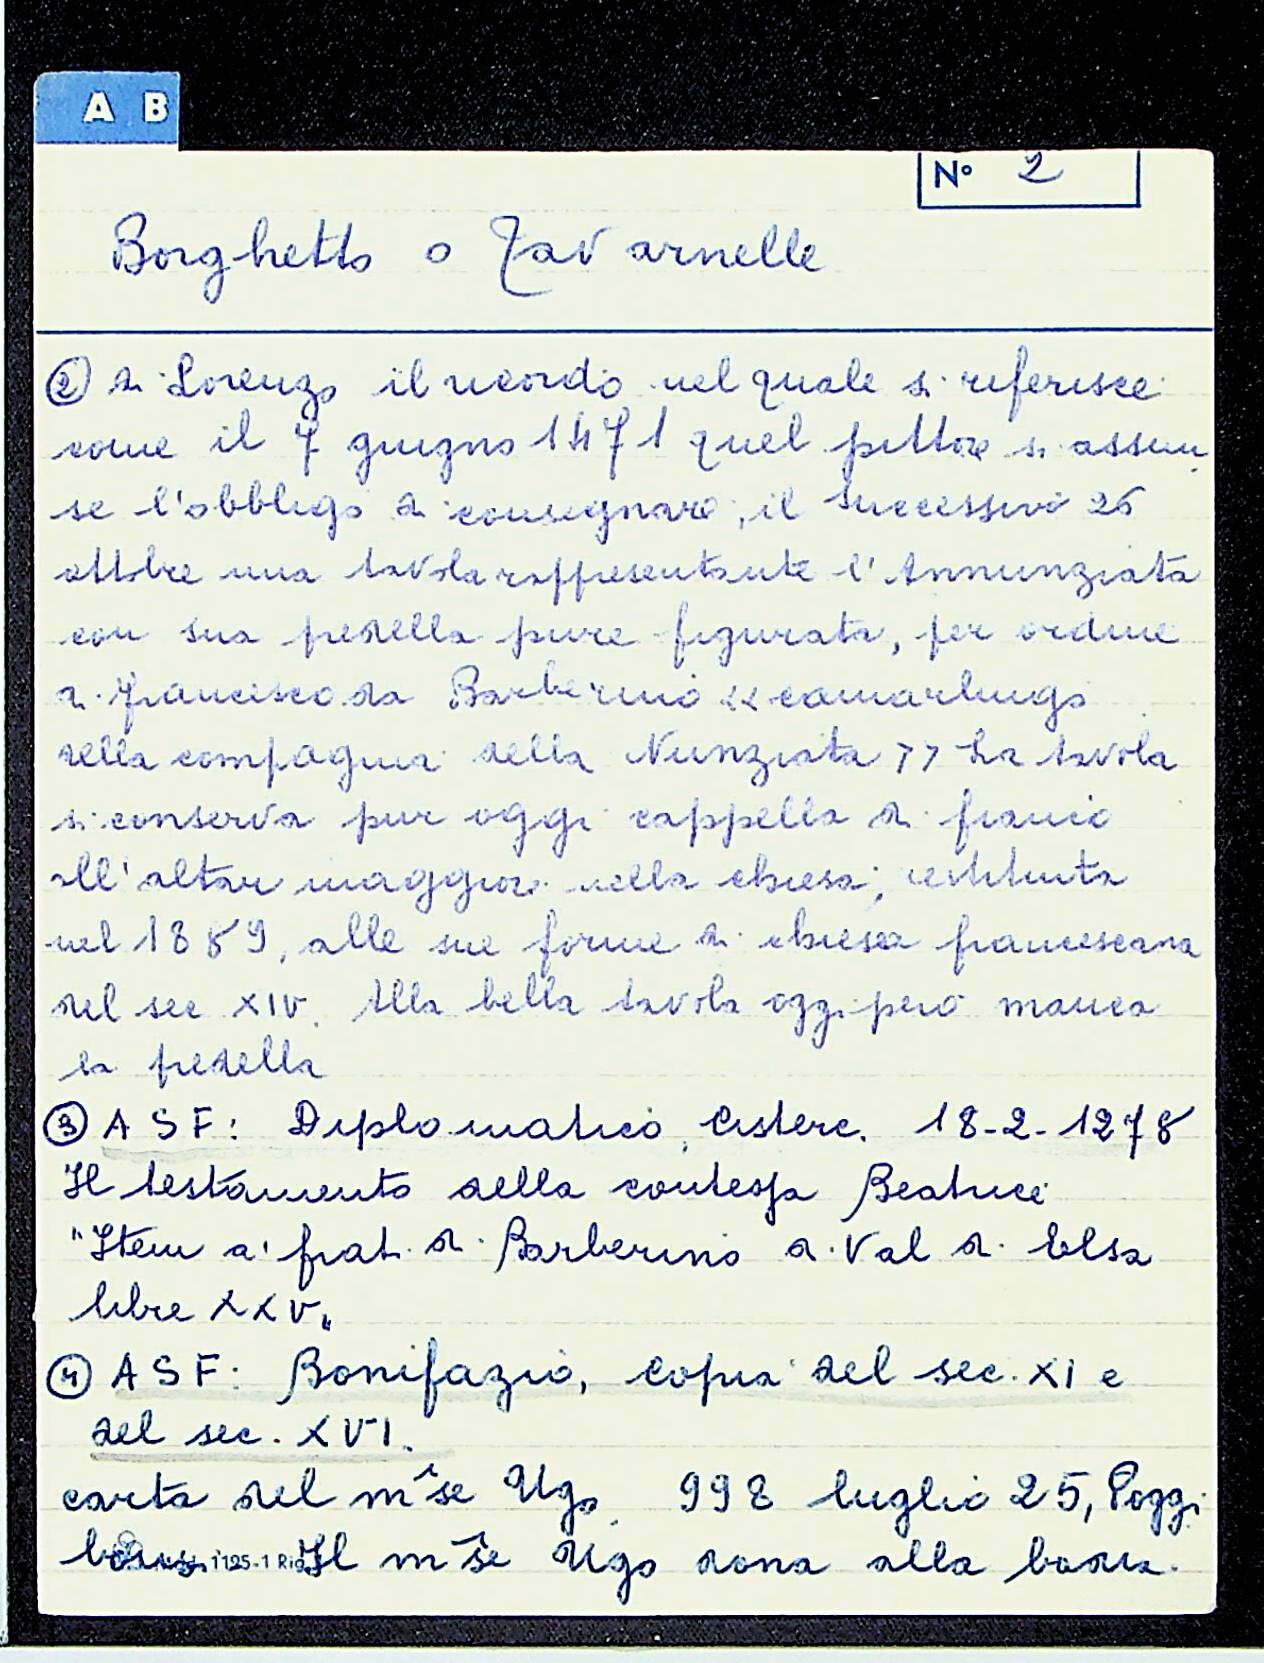 A B
N° 2
Borghetto o Tavarnelle
② di Lorenzo il ricordo nel quale si riferisce
come il 7 giugno 1471 quel pittore si assun
se l'obbligo di consegnare, il successivo 26
ottobre una tavola rappresentante l'Annunziata
con sua predella pure figurata, per ordine
di Francesco da Barberino << camarlingo
della compagnia della Nunziata >> La tavola
si conserva pur oggi cappella di fianco
all'altar maggiore nella chiesa, restituita
nel 1889, alle sue forme di chiesa francescana
del sec XIV. Alla bella tavola oggi però manca
la predella
③ A S F: Diplomatico, Cisterc. 18-2-1278
Il testamento della contessa Beatrice
"Item a' frati di Barberino di Val di Elsa
libre XXV"
④ A S F: Bonifazio, copia del sec. XI e
del sec. XVI.
carta del m^se Ugo 998 luglio 25, Poggi
bonsi. Il m^se Ugo dona alla badia
1125-1